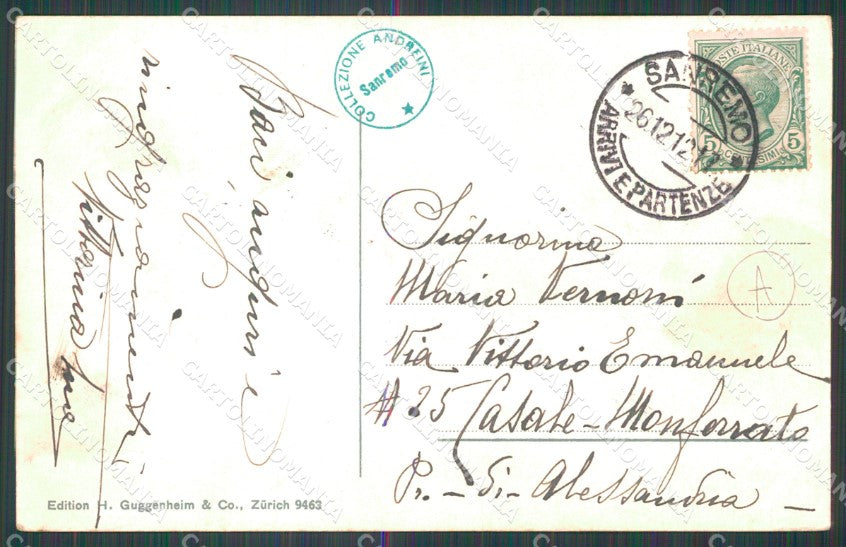 Cari auguri e
ringraziamenti
Vittorina
COLLEZIONE ANDREINI
Sanremo
POSTE ITALIANE
5 5
CENTESIMI
SANREMO
26.12.12.17
ARRIVI E PARTENZE
A
Signorina
Maria Vernoni
Via Vittorio Emanuele
# 25 Casale-Monferrato
Pr. - di - Alessandria -
Edition H. Guggenheim & Co., Zürich 9463
CARTOLINOMANIA